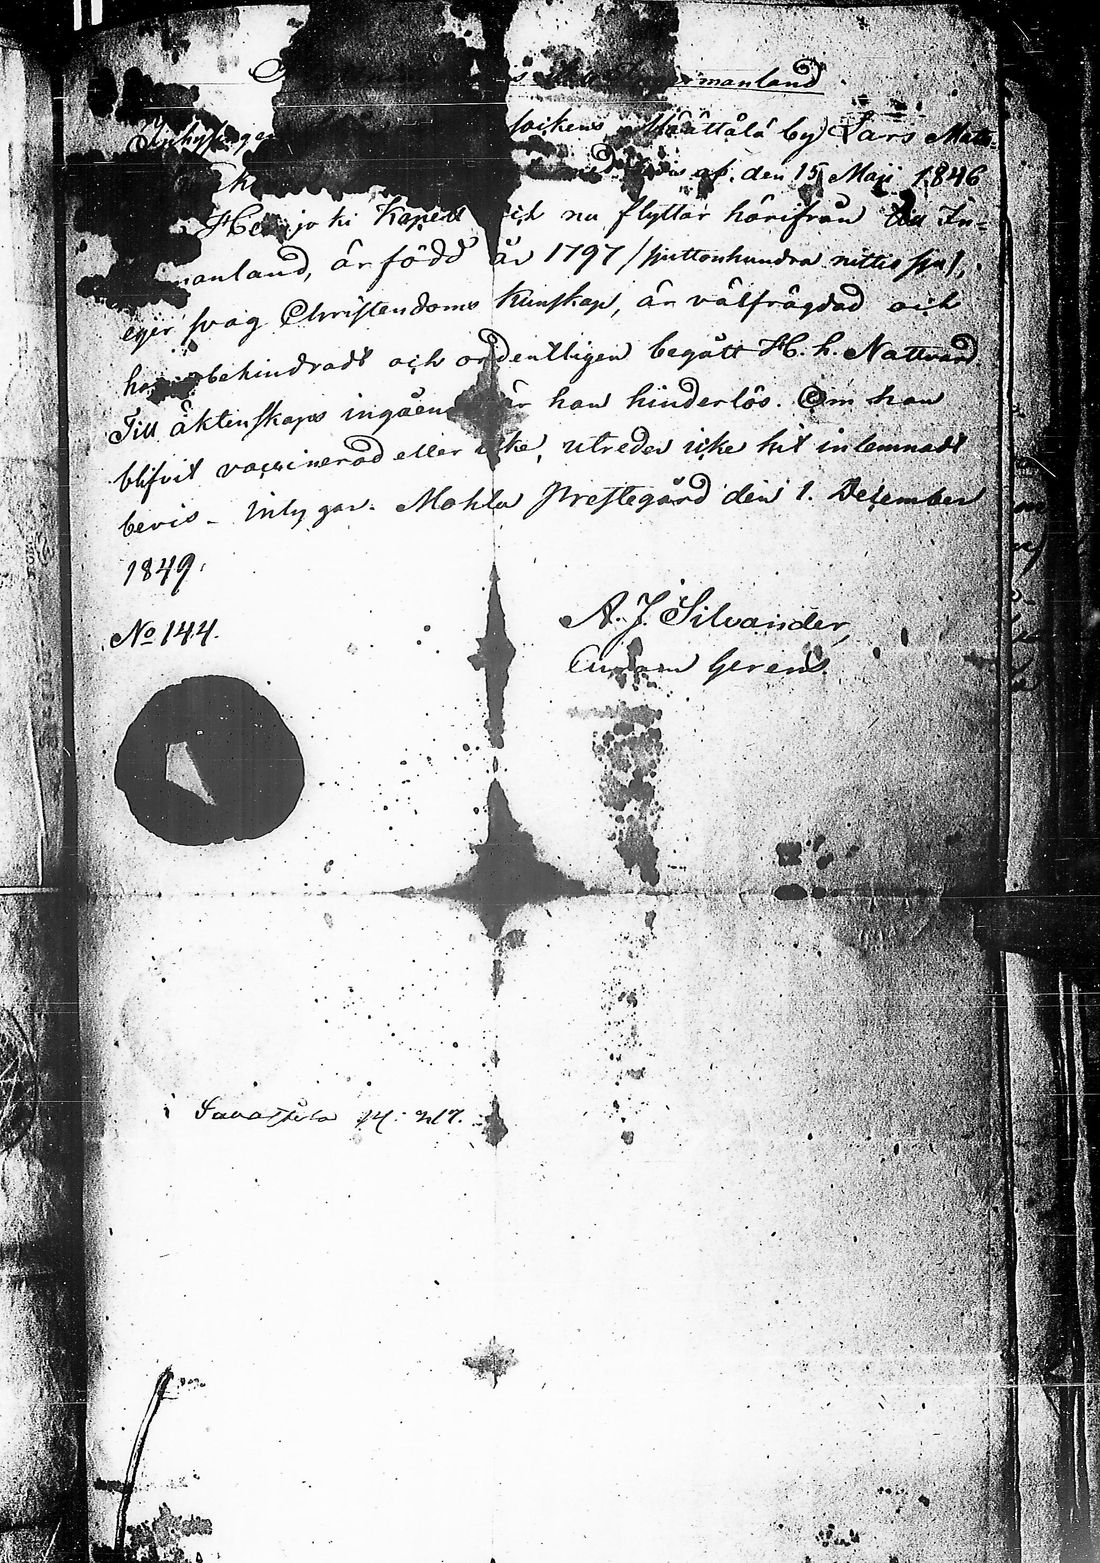 Ingermanland
Inhysingen sockens Määttälä by, Lars Matts-
bevis af den 15 Maji 1846
Heinjoki Kapell och nu flyttar härifrån till In-
manland, är född år 1797 /sjuttonhundra nittio sju/,
eger svag Christendoms kunskap, är välfrägdad och
har obehindradt och ordentligen begått H. h. Nattvard.
Till äktenskaps ingående är han hinderlös. Om han
blifvit vaccinerad eller icke, utredes icke hit inlemnadt
bevis – intygar. Mohla Prestegård den 1. December
1849.
No 144.
A. J. Silvander,
Curam Gerens.
14. 217.